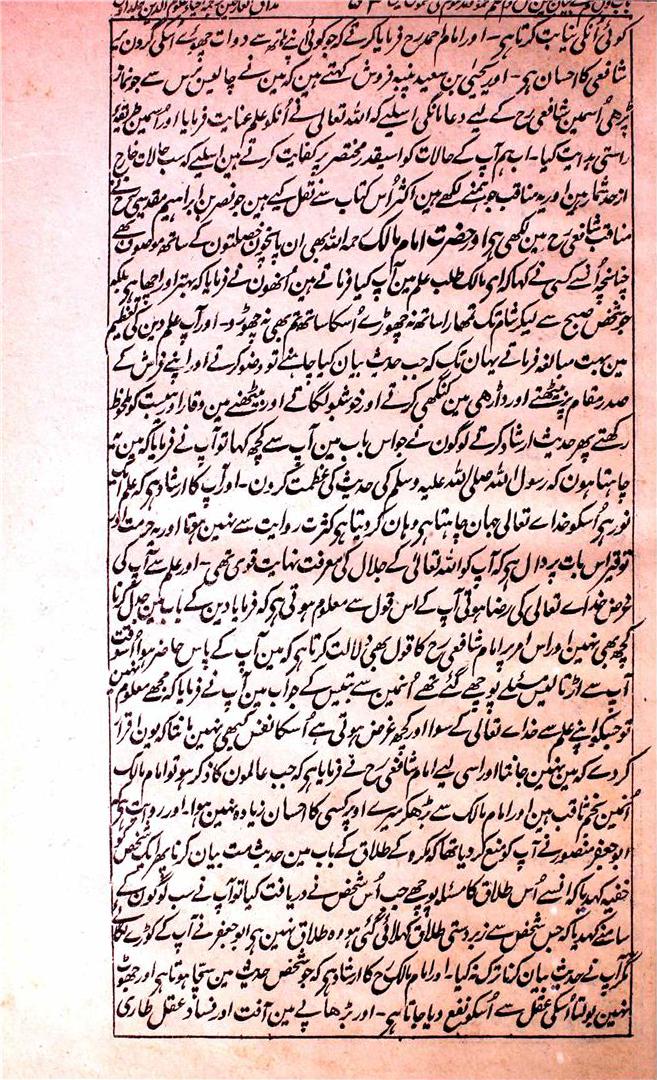 کوئی اُنکی نیابت کرتا ہے۔ اور امام احمد رح فرمایا کرتے کہ جو کوئی اپنے ہاتھ سے دوات چھوئے اُسکی گردن پر
شافعی کا احسان ہے۔ اور یحییٰ بن سعید پنبہ فروش کہتے ہین کہ مین نے چالیس برس سے جو نماز
پڑھی اُسمین شافعی رح کے لیے دعا مانگی اسلیے کہ اللہ تعالیٰ نے اُنکو علم عنایت فرمایا اور اُسمین طریقۂ
راستی ہدایت کیا۔ اب ہم آپ کے حالات کو اسیقدر مختصر پر کفایت کرتے ہین اسلیے کہ سب حالات خارج
از حد شمار ہین اور یہ مناقب جو ہمنے لکھے ہین اکثر اُس کتاب سے نقل کیے ہین جو نصر بن ابراہیم مقدسی رح نے
مناقب شافعی رح مین لکھی ہی اور حضرت امام مالک رحمہ اللہ بھی ان پانچون خصلتون کے ساتھ موصوف تھے
چنانچہ اُنسے کسی نے کہا کہ ای مالک طلب علم مین آپ کیا فرماتے ہین اُنھون نے فرمایا کہ بہتر اور اچھا ہی بلکہ
جو شخص صبح سے لیکر شام تک تمھارا ساتھ نہ چھوڑے اُسکا ساتھ تم بھی نہ چھوڑو۔ اور آپ علم دین کی تعظیم
مین بہت مبالغہ فرماتے یہان تک کہ جب حدیث بیان کیا چاہتے تو وضو کرتے اور اپنے فراش کے
صدر مقام پر بیٹھتے اور داڑھی مین کنگھی کرتے اور خوشبو لگاتے اور بیٹھنے مین وقار اور ہیبت کو ملحوظ
رکھتے پھر حدیث ارشاد کرتے لوگون نے جو اس باب مین آپ سے کچھ کہا تو آپ نے فرمایا کہ مین یہ
چاہتا ہون کہ رسول اللہ صلی اللہ علیہ وسلم کی حدیث کی عظمت کرون۔ اور آپ کا ارشاد ہے کہ علم ایک
نور ہے اُسکو خداے تعالی جہان چاہتا ہے وہان کردیتا ہے کثرت روایت سے نہین ہوتا اور یہ حرمت اور
توقیر اس بات پر دال ہے کہ آپ کو اللہ تعالیٰ کے جلال کی معرفت نہایت قوی تھی۔ اور علم سے آپ کی
غرض خداے تعالی کی رضا ہونی آپ کے اس قول سے معلوم ہوتی ہے کہ فرمایا دین کے باب مین جدال کرنا
کچھ بھی نہین اور اس امر پر امام شافعی رح کا قول بھی دلالت کرتا ہے کہ مین آپ کے پاس حاضر ہوا اُسوقت
آپ سے اڑتالیس مسئلے پوچھے گئے تھے اُنمین سے بتیس کے جواب مین آپ نے فرمایا کہ مجھے معلوم نہین
تو جسکو اپنے علم سے خداے تعالی کے سوا اور کچھ غرض ہوتی ہے اُسکا نفس کبھی نہین مانتا کہ یون اقرار
کردے کہ مین نہین جانتا اور اسی لیے امام شافعی رح نے فرمایا ہے کہ جب عالمون کا ذکر ہو تو امام مالک
اُنمین نجم ثاقب ہین اور امام مالک سے بڑھکر میرے اوپر کسی کا احسان زیادہ نہین ہوا۔ اور روایت ہے کہ
ابو جعفر منصور نے آپ کو منع کردیا تھا کہ مکرہ کے طلاق کے باب مین حدیث مت بیان کرنا پھر ایک شخص کو
خفیہ کہدیا کہ اُنسے اُس طلاق کا مسئلہ پوچھے جب اُس شخص نے دریافت کیا تو آپ نے سب لوگون کے
سامنے کہدیا کہ جس شخص سے زبردستی طلاق کہلائی گئی ہو وہ طلاق نہین ہے ابو جعفر نے آپ کے کوڑے لگائے
مگر آپ نے حدیث بیان کرنا ترک نہ کیا۔ اور امام مالک رح کا ارشاد ہے کہ جو شخص حدیث مین سچا ہوتا ہے اور جھوٹ
نہین بولتا اُسکی عقل سے اُسکو نفع دیا جاتا ہے۔ اور بڑھاپے مین آفت اور فساد عقل طاری